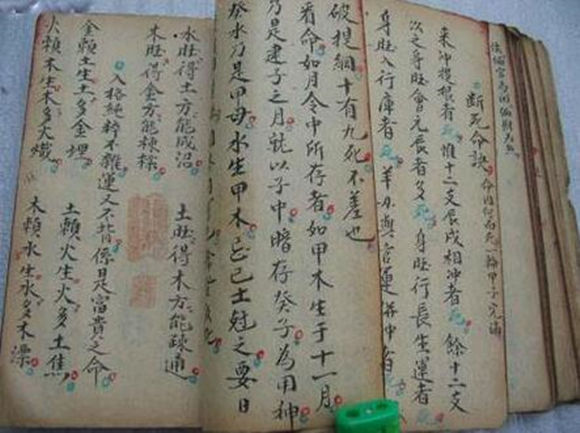 断死命訣
命由何而死一輪甲子完滿
來冲提根者死惟十二支辰戌相冲者死餘十二支
以之身旺會元辰者多死身旺行長生運者
身旺入行庫者死羊刃與官運併冲者
破提綱十有九死不差也
看命如月令中所存者如甲木生于十一月
乃是建子之月就以子中暗存癸子為用神
癸水乃是甲母水生甲木忌己土尅之要日
水旺得土方能成沼
土旺得木方能疎通
木旺得金方能棟樑
入格純粹不雜運又不背係日是富貴之命
金賴土生土多金埋
土賴火生火多土焦
火賴木生木多火熾
木賴水生水多木漂